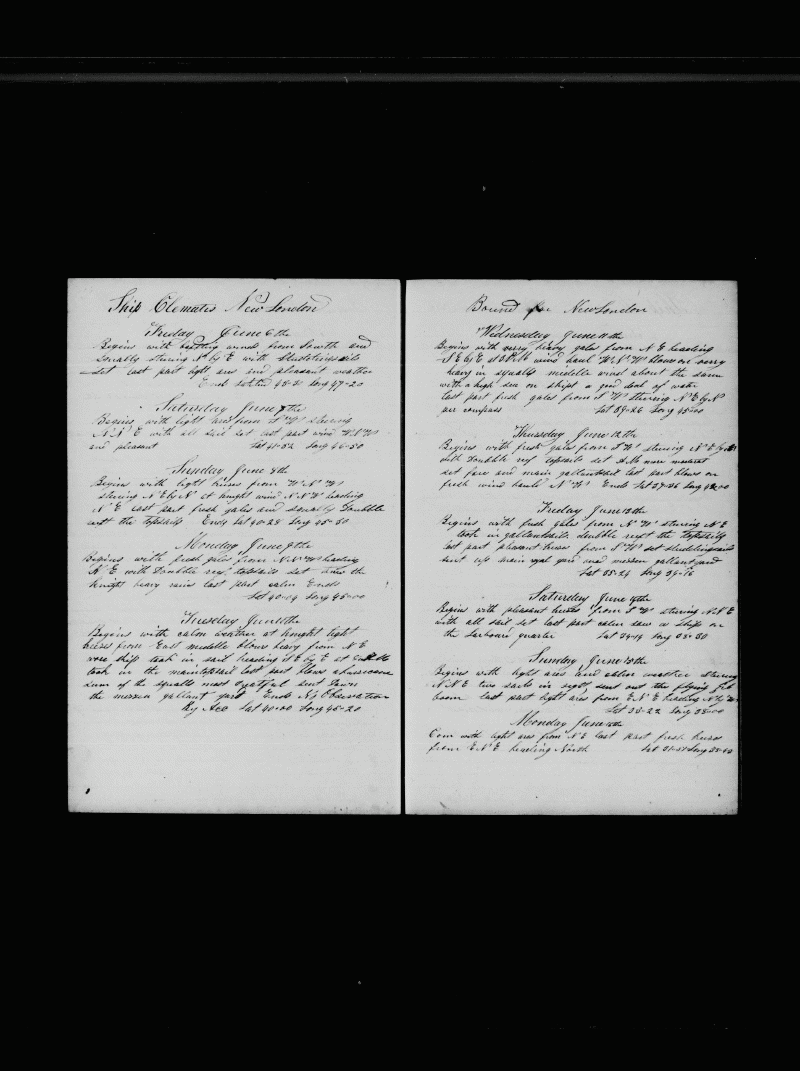 Ship Clematis New London
Friday June 6the
Begins with wind from South and
Squally stering N by E with Studdinsails
set last part light ars and pleasant weather
Ends Lat 43-2 Long 47-20
Saturday June 7the
Begins with light ars from S W stering
N N E with all sail set last part wind W N W
and pleasant Lat 41-52 Long 46-50
Sunday June 8the
Begins with light brises from W N W
stering N E by N at knight wind N N W heading
N E last part fresh gales and squally Doubble
reeft the topsails Ends Lat 40-28 Long 45-30
Monday June 9the
Begins with fresh gales from N N W heading
N E with Doubble reef topsails set threw the
knight heavy rains last part calm Ends
Lat 40-14 Long 45-00
Tuesday June 10the
Begins with calm weather at knight light
brises from East middle blows heavy from N E
wore ship took in sail heading S E by E at
took in the maintopsail last part blows a hurricane
sum of the squalls most sent down
the mizzen gallant yard Ends No Observation
By Acc Lat 40-00 Long 45-20
Bound for New London
Wednesday June 11the
Begins with very heavy gales from N E heading
S E by E at 3 P M wind haul W N W blows on very
heavy in squalls middle wind about the same
with a high sea on shipt a good deal of water
last part fresh gales from S W stering N E by N
per compass Lat 39-26 Long 43-00
Thursday June 12the
Begins with fresh gales from S W stering N E by N
with Doubble reef topsails set A M more moderat
set fore and main gallantsail last part blows on
fresh wind hauls N W Ends Lat 37-36 Long 42-00
Friday June 13the
Begins with fresh gales from N W stering N E
took in gallantsails doubble reeft the topsails
last part pleasant brises from S W set studdingsails
sent up main royal yard and mizzen gallant yard
Lat 35-24 Long 39-16
Saturday June 14the
Begins with pleasant brises from S W stering N N E
with all sail set last part calm saw a Ship on
the larboard quarter Lat 34-14 Long 38-30
Sunday June 15the
Begins with light ares and calm weather stering
N N E two sails in sight, sent out the flying jib
boom last part light ares from E N E heading N by W
Lat 33-22 Long 38-00
Monday June 16the
Com with light ares from N E last part fresh brises
from E N E heading North Lat 31-51 Long 38-40